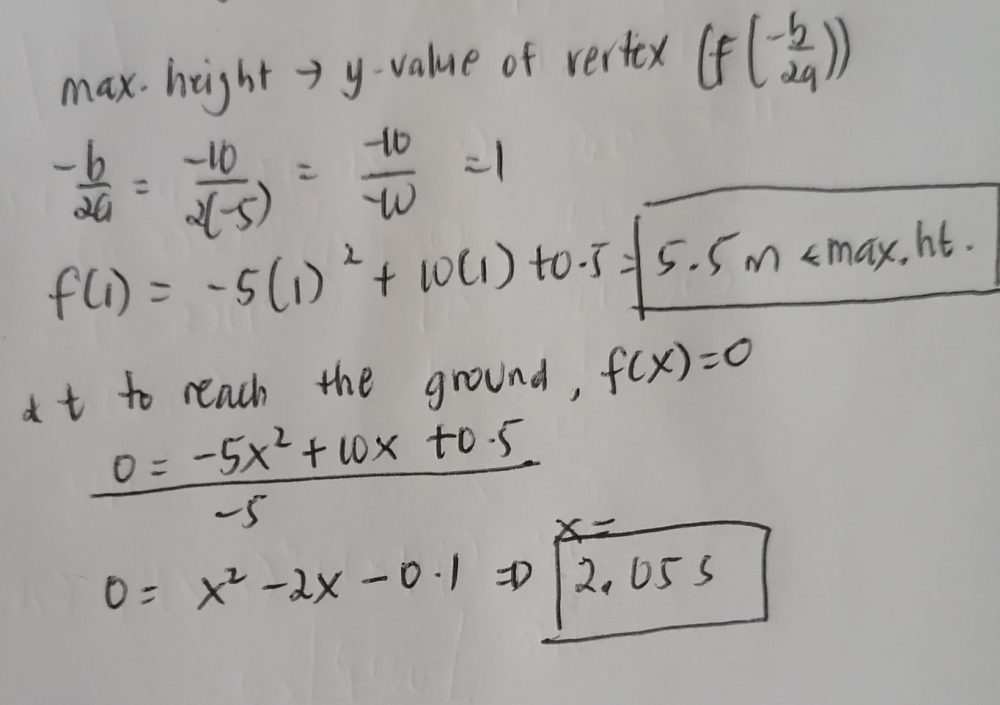 max. height → y-value of vertex (f(-b/2a))
-b/2a = -10/2(-5) = -10/-10 = 1
f(1) = -5(1)² + 10(1) +0.5 = 5.5 m < max. ht.
t to reach the ground, f(x)=0
0 = -5x² + 10x +0.5
-5
x=
0 = x² - 2x - 0.1 ⇒ 2.05 s